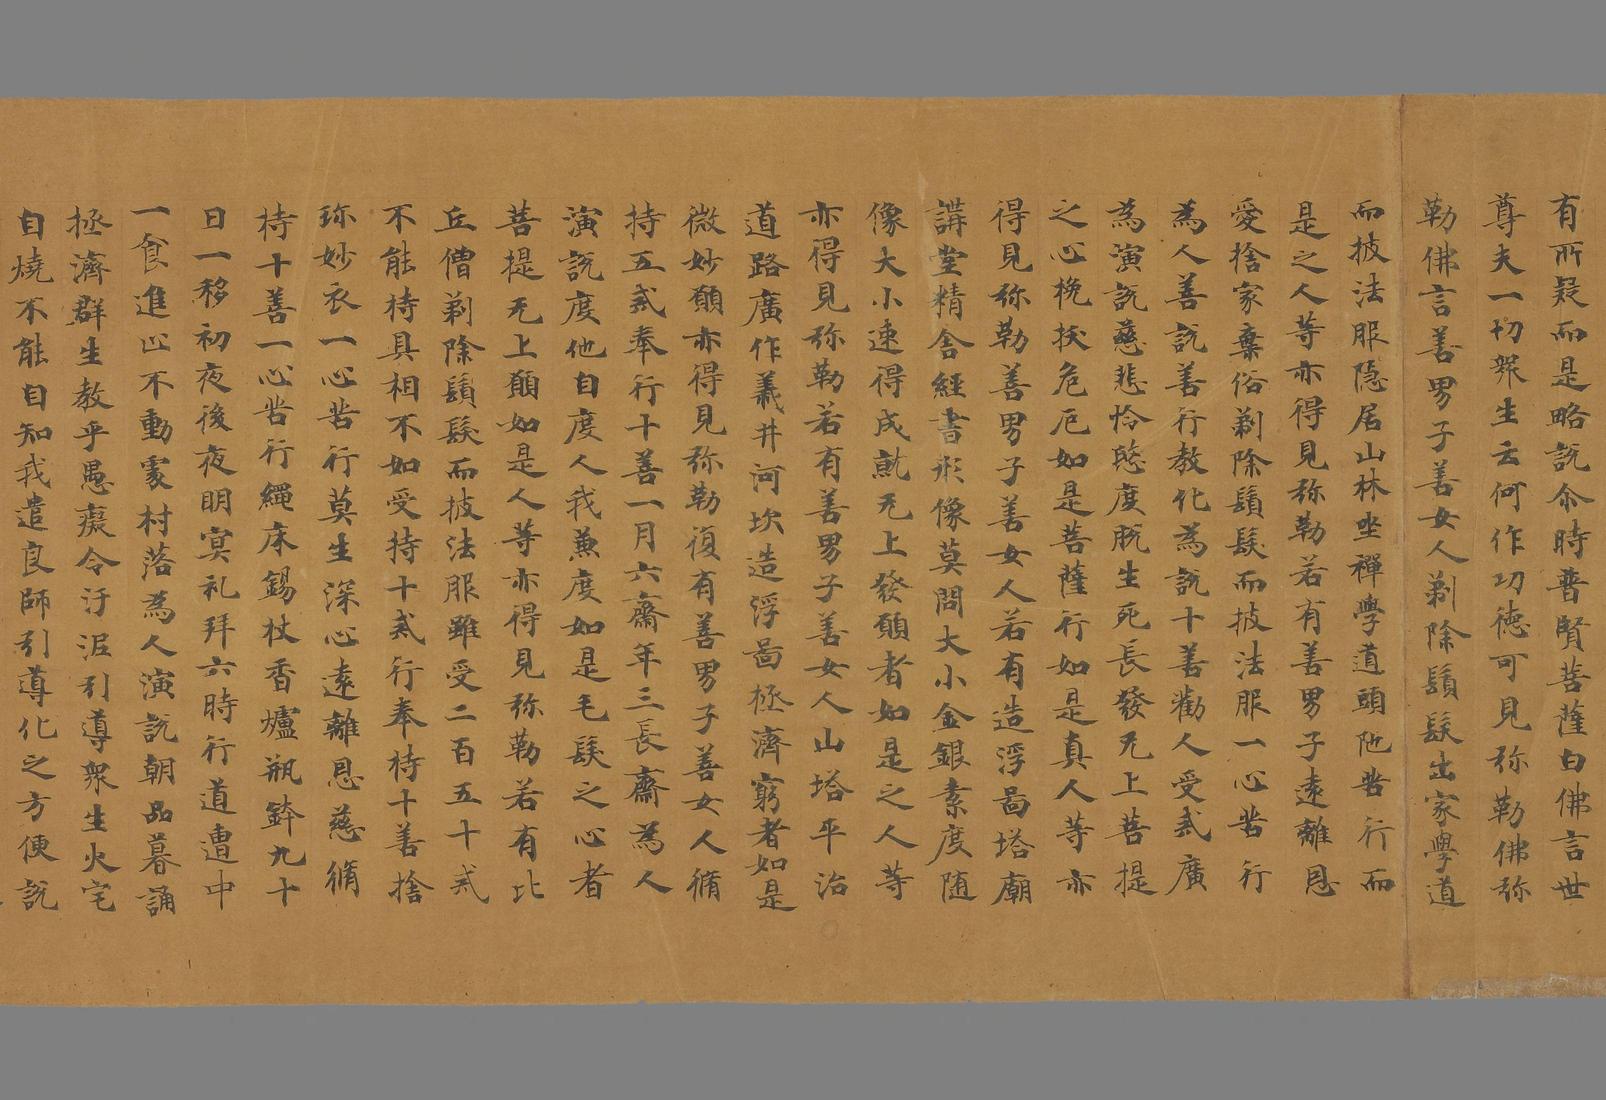 有所疑而是略説尒時普賢菩薩白佛言世
尊夫一切衆生云何作功徳可見弥勒佛弥
勒佛言善男子善女人剃除鬚髮出家學道
而披法服隠居山林坐禪學道頭陁苦行而
是之人等亦得見弥勒若有善男子遠離恩
愛捨家棄俗剃除鬚髮而披法服一心苦行
為人善説善行教化為説十善勸人受戒廣
為演説慈悲怜愍度脱生死長發无上菩提
之心挽扶危厄如是菩薩行如是真人等亦
得見弥勒善男子善女人若有造浮啚塔廟
講堂精舎經書形像莫問大小金銀素度随
像大小速得成就无上發願者如是之人等
亦得見弥勒若有善男子善女人山塔平治
道路廣作義井河坎造浮啚拯濟窮者如是
微妙願亦得見弥勒復有善男子善女人脩
持五戒奉行十善一月六齋年三長齋為人
演説度他自度人我兼度如是毛髮之心者
菩提无上願如是人等亦得見弥勒若有比
丘僧剃除鬚髮而披法服雖受二百五十戒
不能持具相不如受持十戒行奉持十善捨
珎妙衣一心苦行莫生深心遠離恩慈脩
持十善一心苦行繩床錫杖香爐瓶鉢九十
日一移初夜後夜明㝠礼拜六時行道遭中
一食進止不動䖏村落為人演説朝品暮誦
拯濟群生教乎愚癡令汙泥引導衆生火宅
自燒不能自知我遣良師引導化之方便説